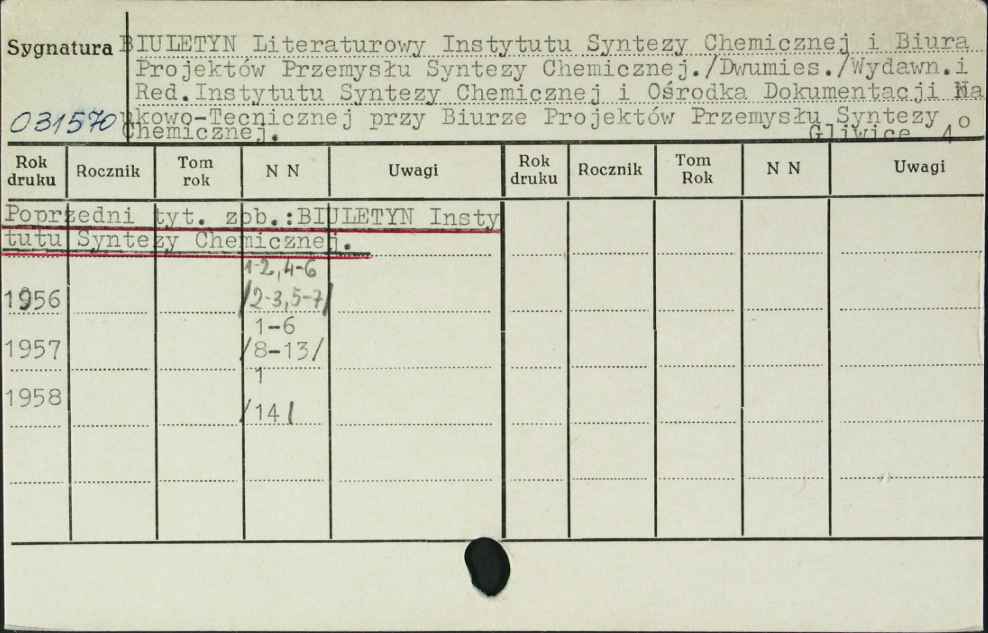 Sygnatura BIULETYN Literaturowy Instytutu Syntezy Chemicznej i Biura
Projektów Przemysłu Syntezy Chemicznej./Dwumies./Wydawn.i
Red.Instytutu Syntezy Chemicznej i Ośrodka Dokumentacji Na
031570 ukowo-Tecnicznej przy Biurze Projektów Przemysłu Syntezy
Chemicznej. Gliwice 4o
Rok druku Rocznik Tom rok N N Uwagi Rok druku Rocznik Tom Rok N N Uwagi
Poprzedni tyt. zob.:BIULETYN Insty
tutu Syntezy Chemicznej.
1-2,4-6
1956 /2-3,5-7/
1-6
1957 /8-13/
1
1958
/14/